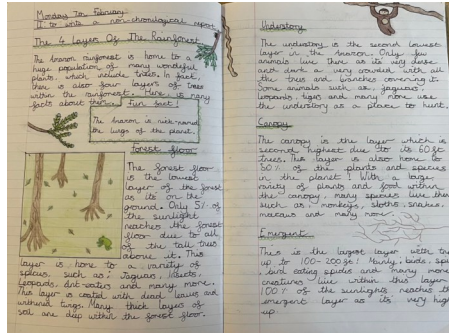 Monday 7th February
LI to write a non-chronological report
The 4 Layers Of The Rainforest
The Amazon rainforest is home to a
huge population of many wonderful
plants, which include trees. In fact,
there is also four layers of trees
within the rainforest. Here is many
facts about them...
Fun fact!
The Amazon is nick-named
the lungs of the planet.
Forest floor
The forest floor
is the lowest
layer of the forest
as its on the
ground. Only 5% of
the sunlight
reaches the forest
floor due to all
of the tall trees
above it. This
layer is home to a variety of
species such as: Jaguars, Insects,
Leopards, Ant-eaters and many more.
This layer is coated with dead leaves and
withered twigs. Many thick layers of
soil are deep within the forest floor.
Understory
The understory is the second lowest
layer in the Amazon. Only few
animals live there as its very dense
and dark as very crowded with all
the trees and branches covering it.
Some animals such as: jaguars,
leopards, tigers and many more use
the understory as a place to hunt.
Canopy
The canopy is the layer which is
second highest due to its 60ft
trees. This layer is also home to
50% of the plants and species
in the planet! With a large
variety of plants and food within
the canopy, many species live there
such as: monkeys, sloths, snakes,
macaws and many more.
Emergent
This is the largest layer with
up to 100-200ft! Mainly, birds,
bird eating spiders and many more
creatures live within this layer.
100% of the sunlight reaches the
emergent layer as its very high
up.